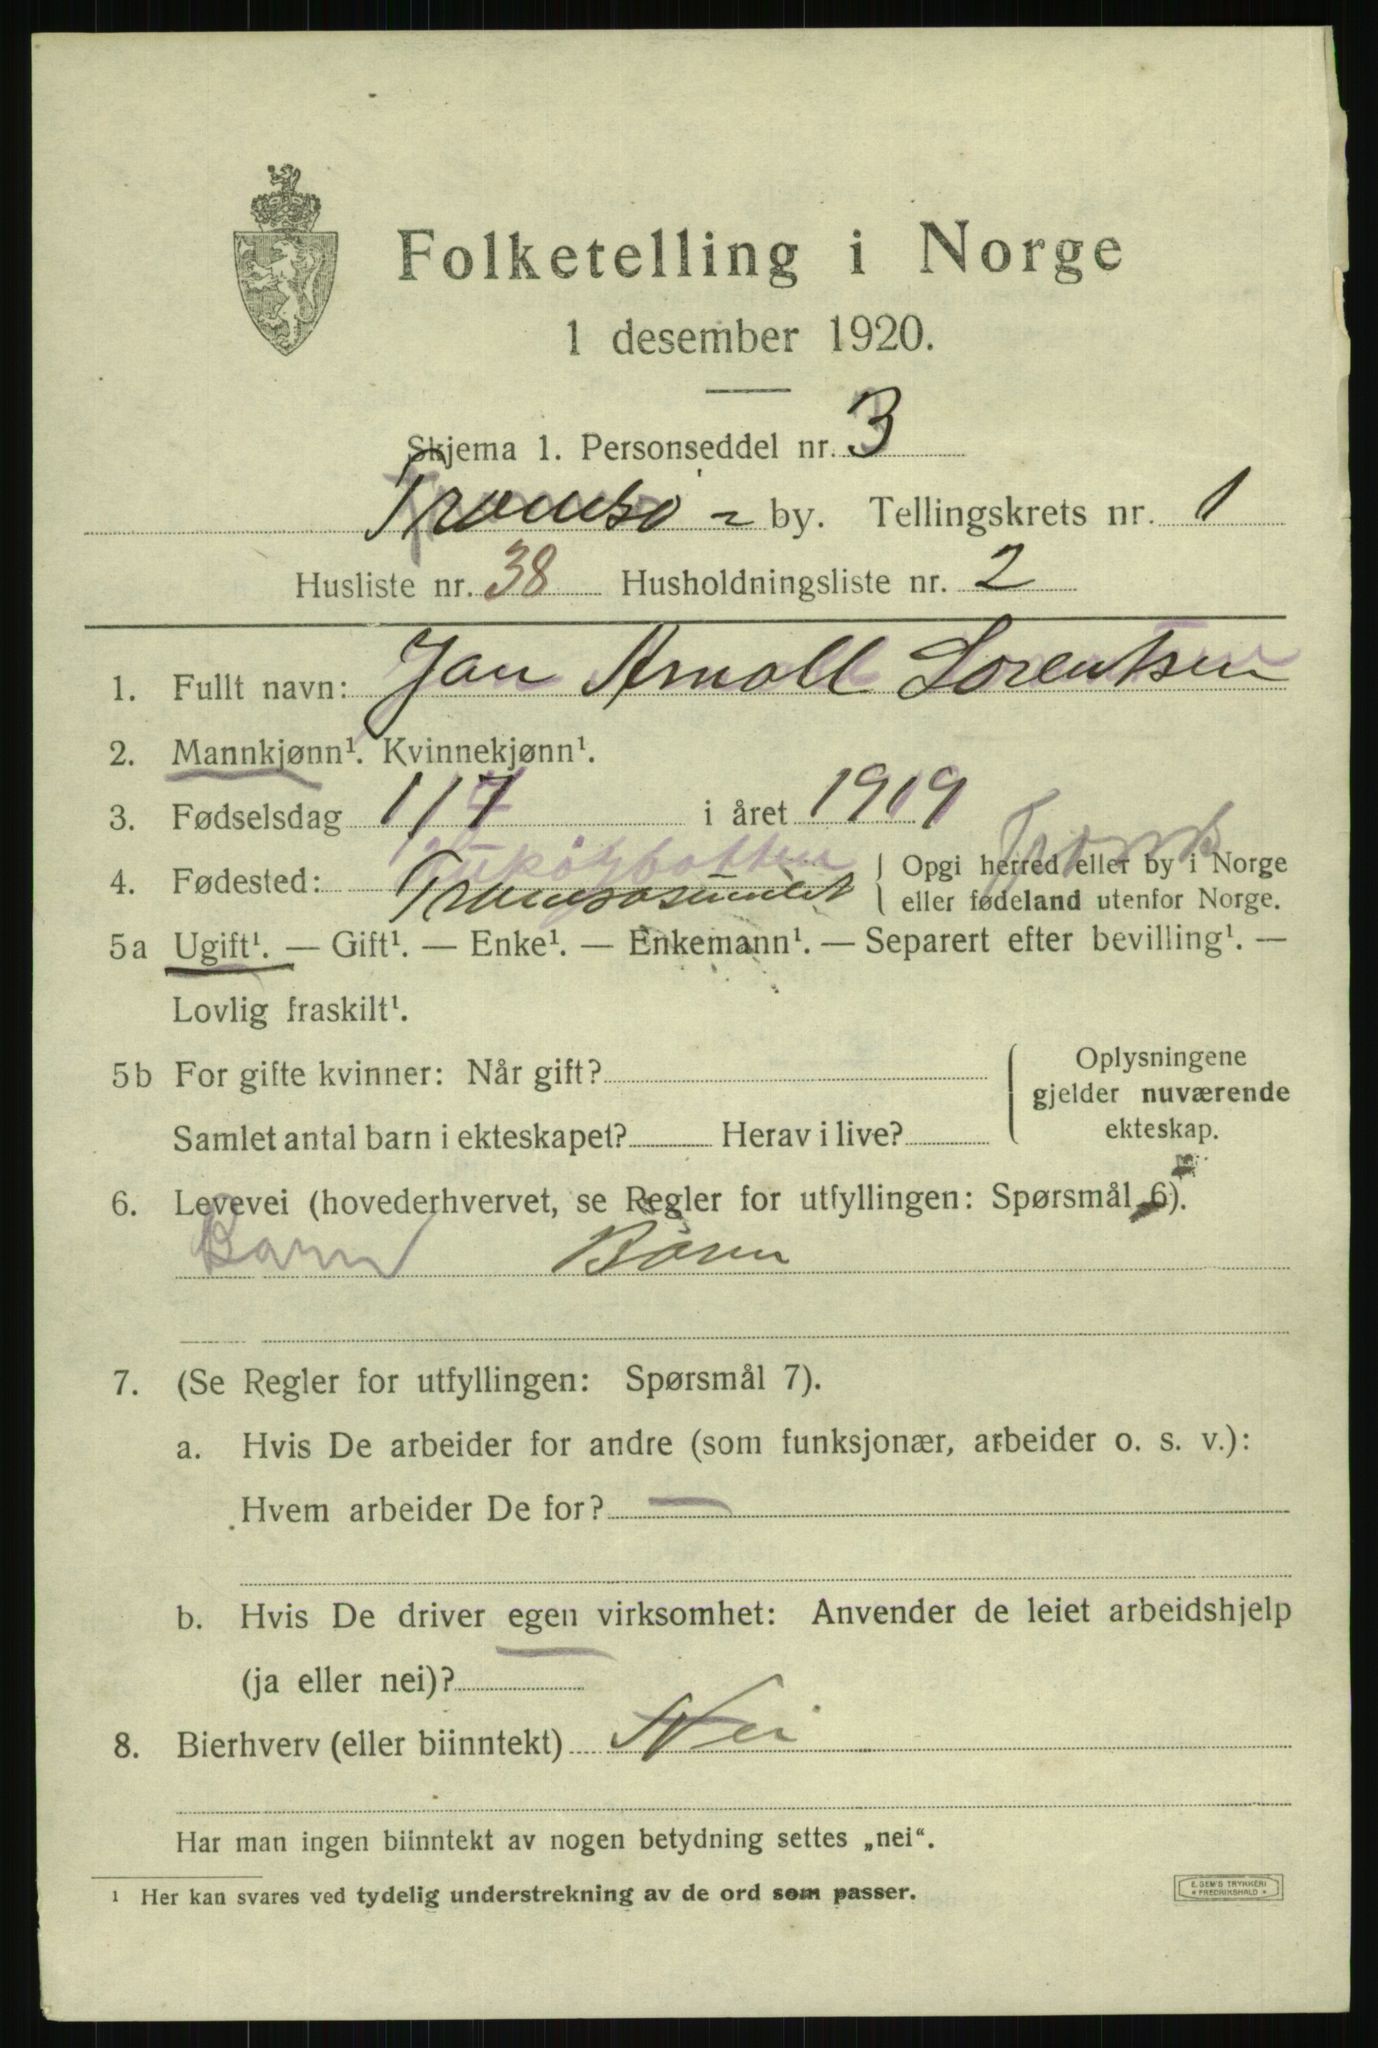 Folketelling i Norge
1 desember 1920.
Skjema 1. Personseddel nr. 3
Tromsø - by. Tellingskrets nr. 1
Husliste nr. 38 Husholdningsliste nr. 2
1. Fullt navn: Jan Arnoll Lorentsen
2. Mannkjønn¹. Kvinnekjønn¹.
3. Fødselsdag 1/7 i året 1919
4. Fødested: Tromsøsundet { Opgi herred eller by i Norge
eller fødeland utenfor Norge.
5a Ugift¹. — Gift¹. — Enke¹. — Enkemann¹. — Separert efter bevilling¹. —
Lovlig fraskilt¹.
5b For gifte kvinner: Når gift?
Samlet antal barn i ekteskapet? Herav i live?
Oplysningene
gjelder nuværende
ekteskap.
6. Levevei (hovederhvervet, se Regler for utfyllingen: Spørsmål 6).
Barn Barn
7. (Se Regler for utfyllingen: Spørsmål 7).
a. Hvis De arbeider for andre (som funksjonær, arbeider o. s. v.):
Hvem arbeider De for? —
b. Hvis De driver egen virksomhet: Anvender de leiet arbeidshjelp
(ja eller nei)?
8. Bierhverv (eller biinntekt) Nei
Har man ingen biinntekt av nogen betydning settes „nei“.
¹ Her kan svares ved tydelig understrekning av de ord som passer.
E. SEM'S TRYKKERI
* FREDRIKSHALD *